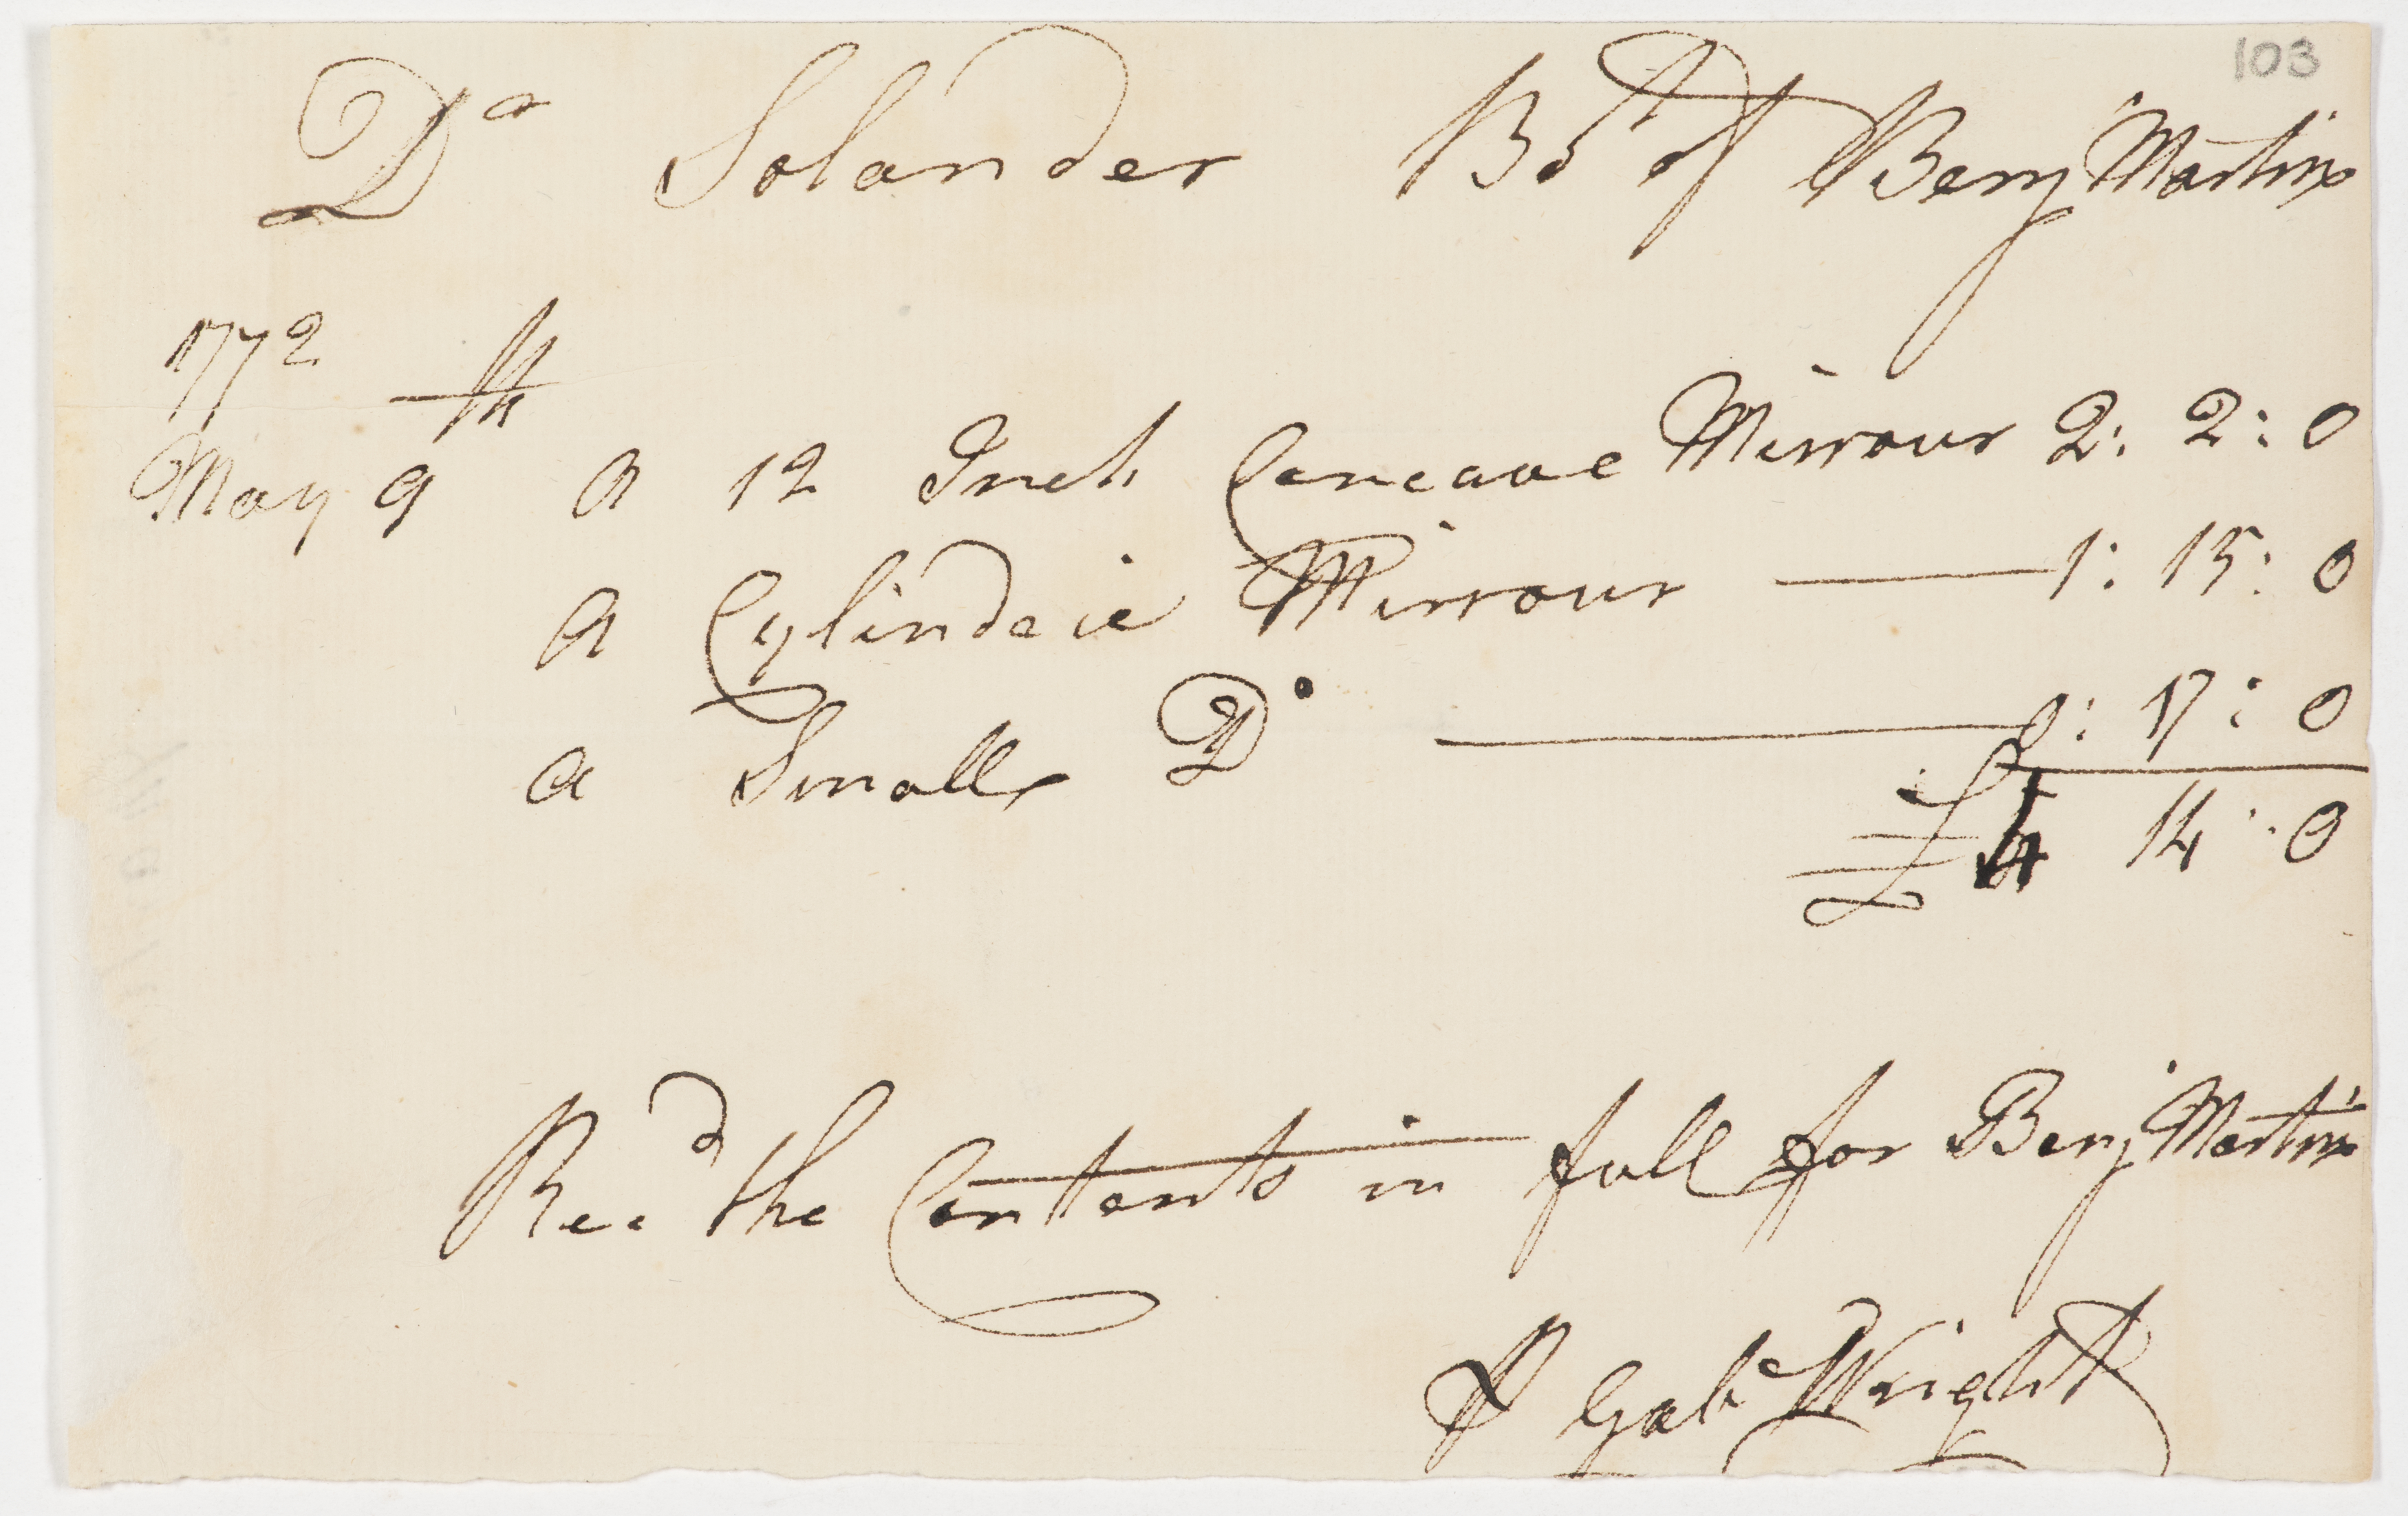 103
Dr Solander Bot of Benj Martin
1772
May 9th a 12 Inch Concave Mirrour 2: 2: 0
a Cylindric Mirrour — 1: 15: 0
a Small Do — 0: 17: 0
£4 14: 0
Recd the Contents in full for Benj Martin
P Gabe Wright